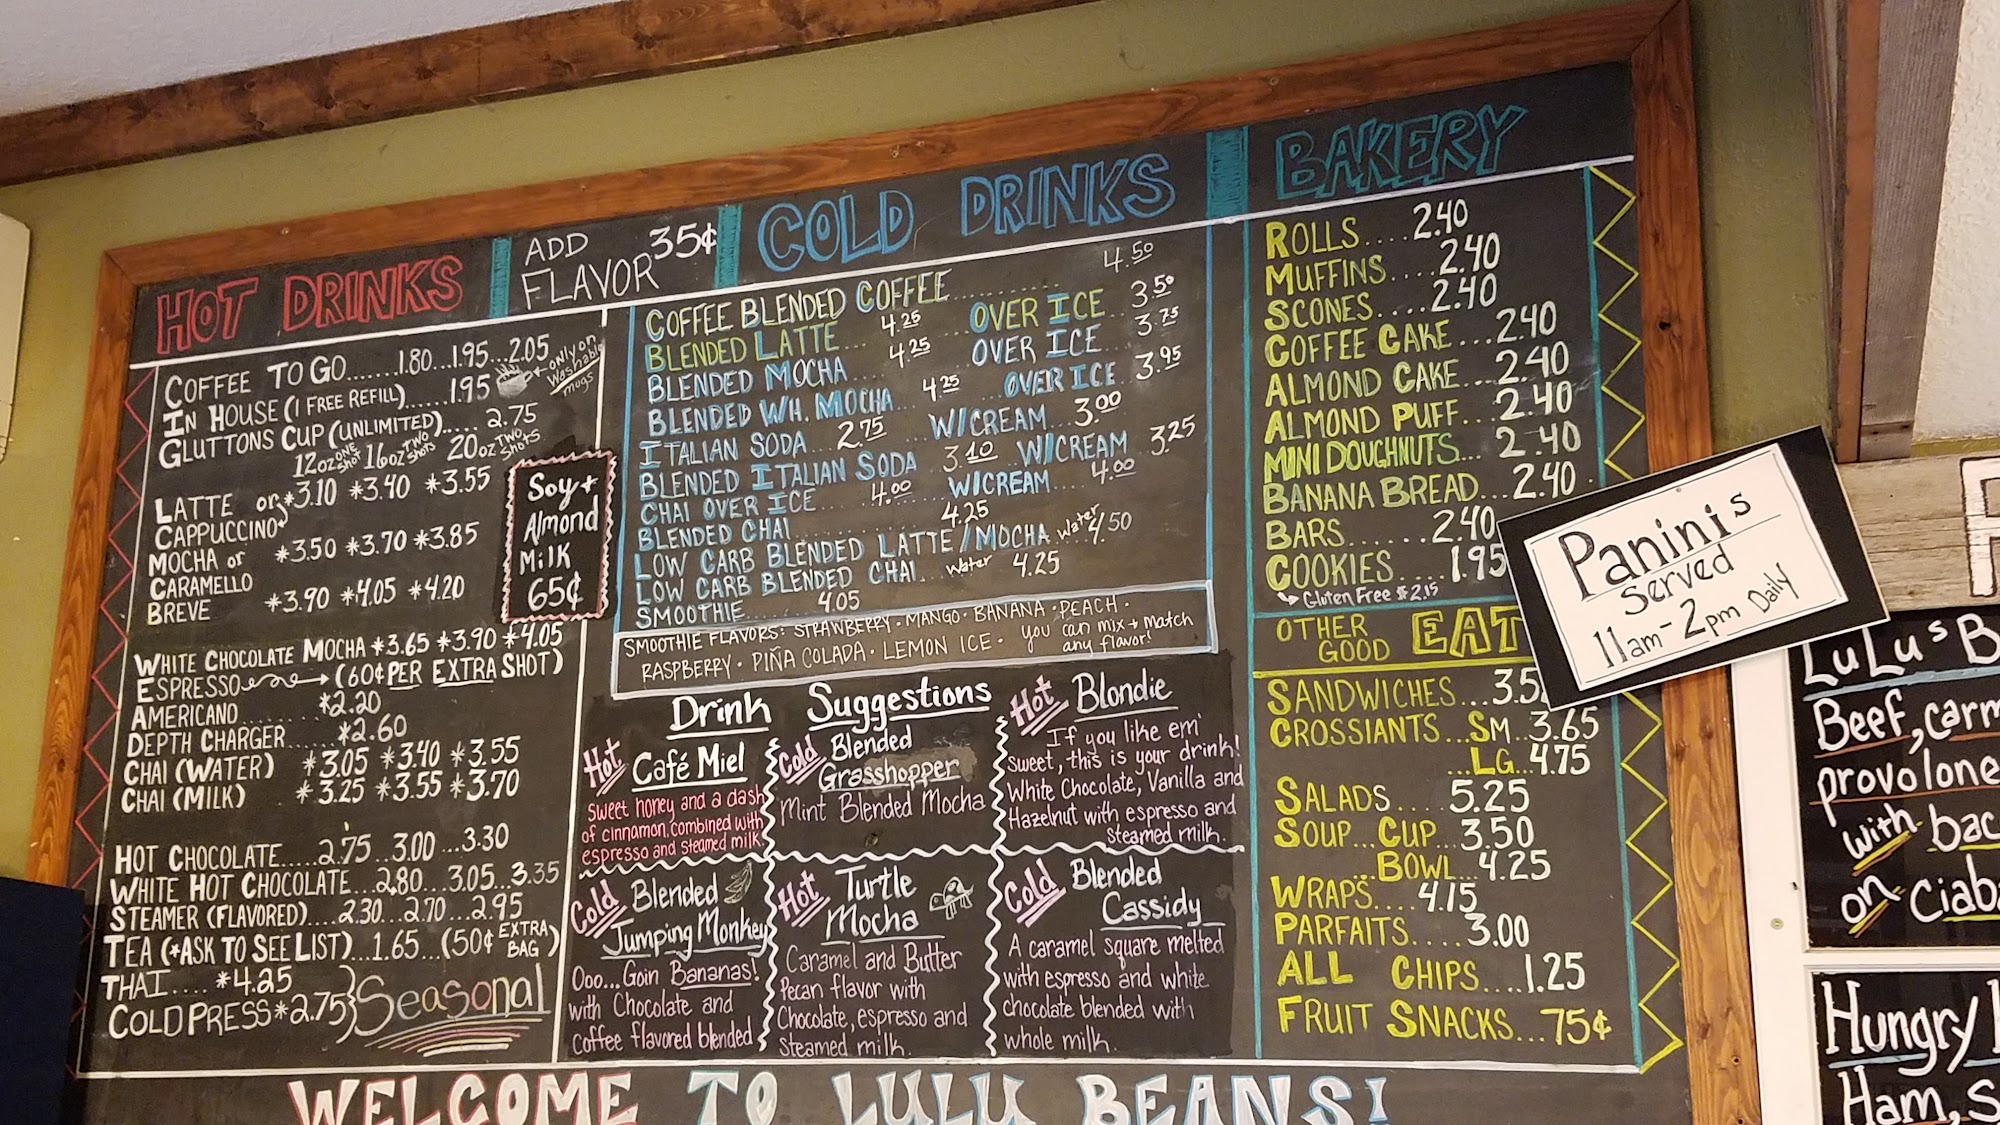 HOT DRINKS
ADD FLAVOR 35¢
COFFEE TO GO.......1.80...1.95...2.05
IN HOUSE (1 FREE REFILL)......1.95 ←only on washable mugs
GLUTTONS CUP (UNLIMITED)..... 2.75
12oz ONE SHOT 16oz TWO SHOTS 20oz TWO SHOTS
LATTE or *3.10 *3.40 *3.55
CAPPUCCINO
MOCHA or *3.50 *3.70 *3.85
CARAMELLO
BREVE *3.90 *4.05 *4.20
Soy +
Almond
Milk
65¢
WHITE CHOCOLATE MOCHA *3.65 *3.90 *4.05
ESPRESSO (60¢ PER EXTRA SHOT)
AMERICANO........ *2.20
DEPTH CHARGER..... *2.60
CHAI (WATER) *3.05 *3.40 *3.55
CHAI (MILK) *3.25 *3.55 *3.70
HOT CHOCOLATE.....2.75...3.00...3.30
WHITE HOT CHOCOLATE...2.80...3.05...3.35
STEAMER (FLAVORED)....2.30...2.70...2.95
TEA (*ASK TO SEE LIST)...1.65...(50¢ EXTRA BAG)
THAI.... *4.25
COLD PRESS *2.75 } Seasonal
COLD DRINKS
COFFEE BLENDED COFFEE............ 4.50
BLENDED LATTE... 4.25 OVER ICE... 3.50
BLENDED MOCHA... 4.25 OVER ICE... 3.75
BLENDED WH. MOCHA... 4.25 OVER ICE... 3.95
ITALIAN SODA... 2.75 ... W/CREAM... 3.00
BLENDED ITALIAN SODA 3.10 W/CREAM 3.25
CHAI OVER ICE... 4.00 ... W/CREAM... 4.00
BLENDED CHAI............ 4.25
LOW CARB BLENDED LATTE/MOCHA water 4.50
LOW CARB BLENDED CHAI... water 4.25
SMOOTHIE........ 4.05
SMOOTHIE FLAVORS: STRAWBERRY · MANGO · BANANA · PEACH ·
RASPBERRY · PIÑA COLADA · LEMON ICE · you can mix + match any flavor!
Drink Suggestions
Hot Café Miel
Sweet honey and a dash
of cinnamon. combined with
espresso and steamed milk.
Cold Blended
Grasshopper
Mint Blended Mocha
Hot Blondie
If you like em'
sweet, this is your drink!
White Chocolate, Vanilla and
Hazelnut with espresso and
steamed milk.
Cold Blended
Jumping Monkey
Ooo...Goin Bananas!
with Chocolate and
coffee flavored blended
Hot Turtle
Mocha
Caramel and Butter
Pecan flavor with
Chocolate, espresso and
steamed milk.
Cold Blended
Cassidy
A caramel square melted
with espresso and white
chocolate blended with
whole milk.
BAKERY
ROLLS.... 2.40
MUFFINS.... 2.40
SCONES.... 2.40
COFFEE CAKE... 2.40
ALMOND CAKE... 2.40
ALMOND PUFF... 2.40
MINI DOUGHNUTS... 2.40
BANANA BREAD... 2.40
BARS....... 2.40
COOKIES.... 1.95
Gluten Free $2.15
OTHER GOOD EAT
SANDWICHES...3.5
CROSSIANTS...SM...3.65
...LG...4.75
SALADS.... 5.25
SOUP...CUP...3.50
...BOWL...4.25
WRAPS.... 4.15
PARFAITS.... 3.00
ALL CHIPS....1.25
FRUIT SNACKS...75¢
Paninis
Served
11am-2pm Daily
LuLu's B
Beef, carm
provolone
with bac
on Ciaba
Hungry
Ham, S
WELCOME TO LULU BEANS!